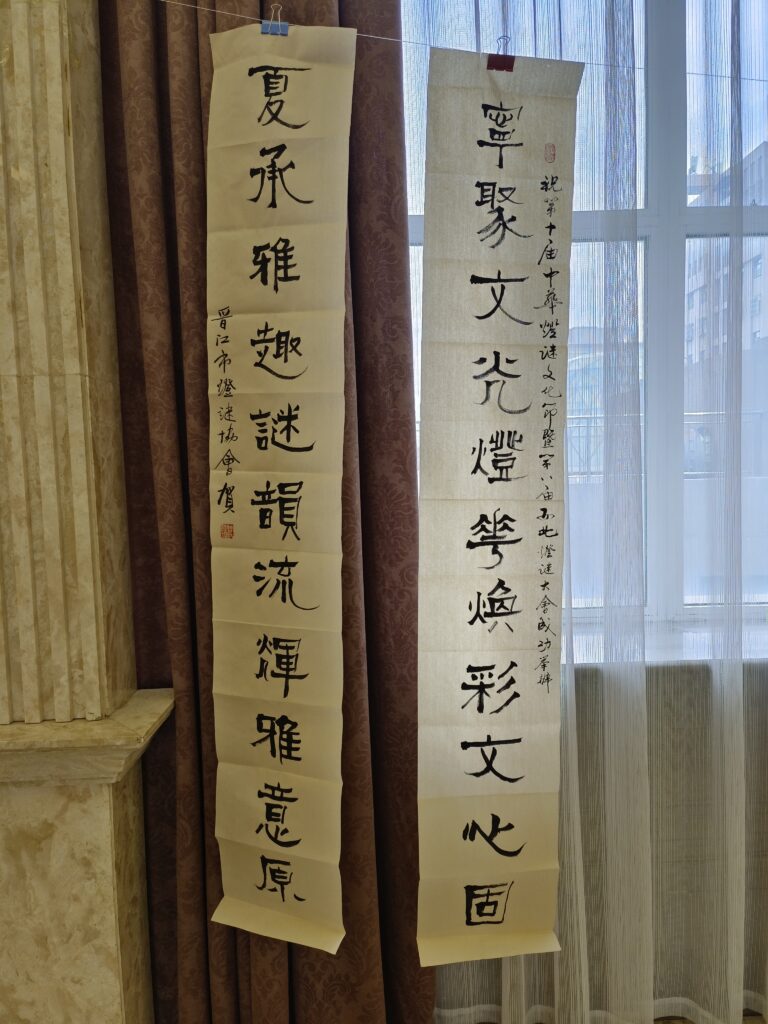 祝第十届中華燈謎文化節暨第八届西北燈謎大會成功舉辦
寧聚文光燈華煥彩文心固
夏承雅趣謎韻流輝雅意原
晉江市燈謎協會賀